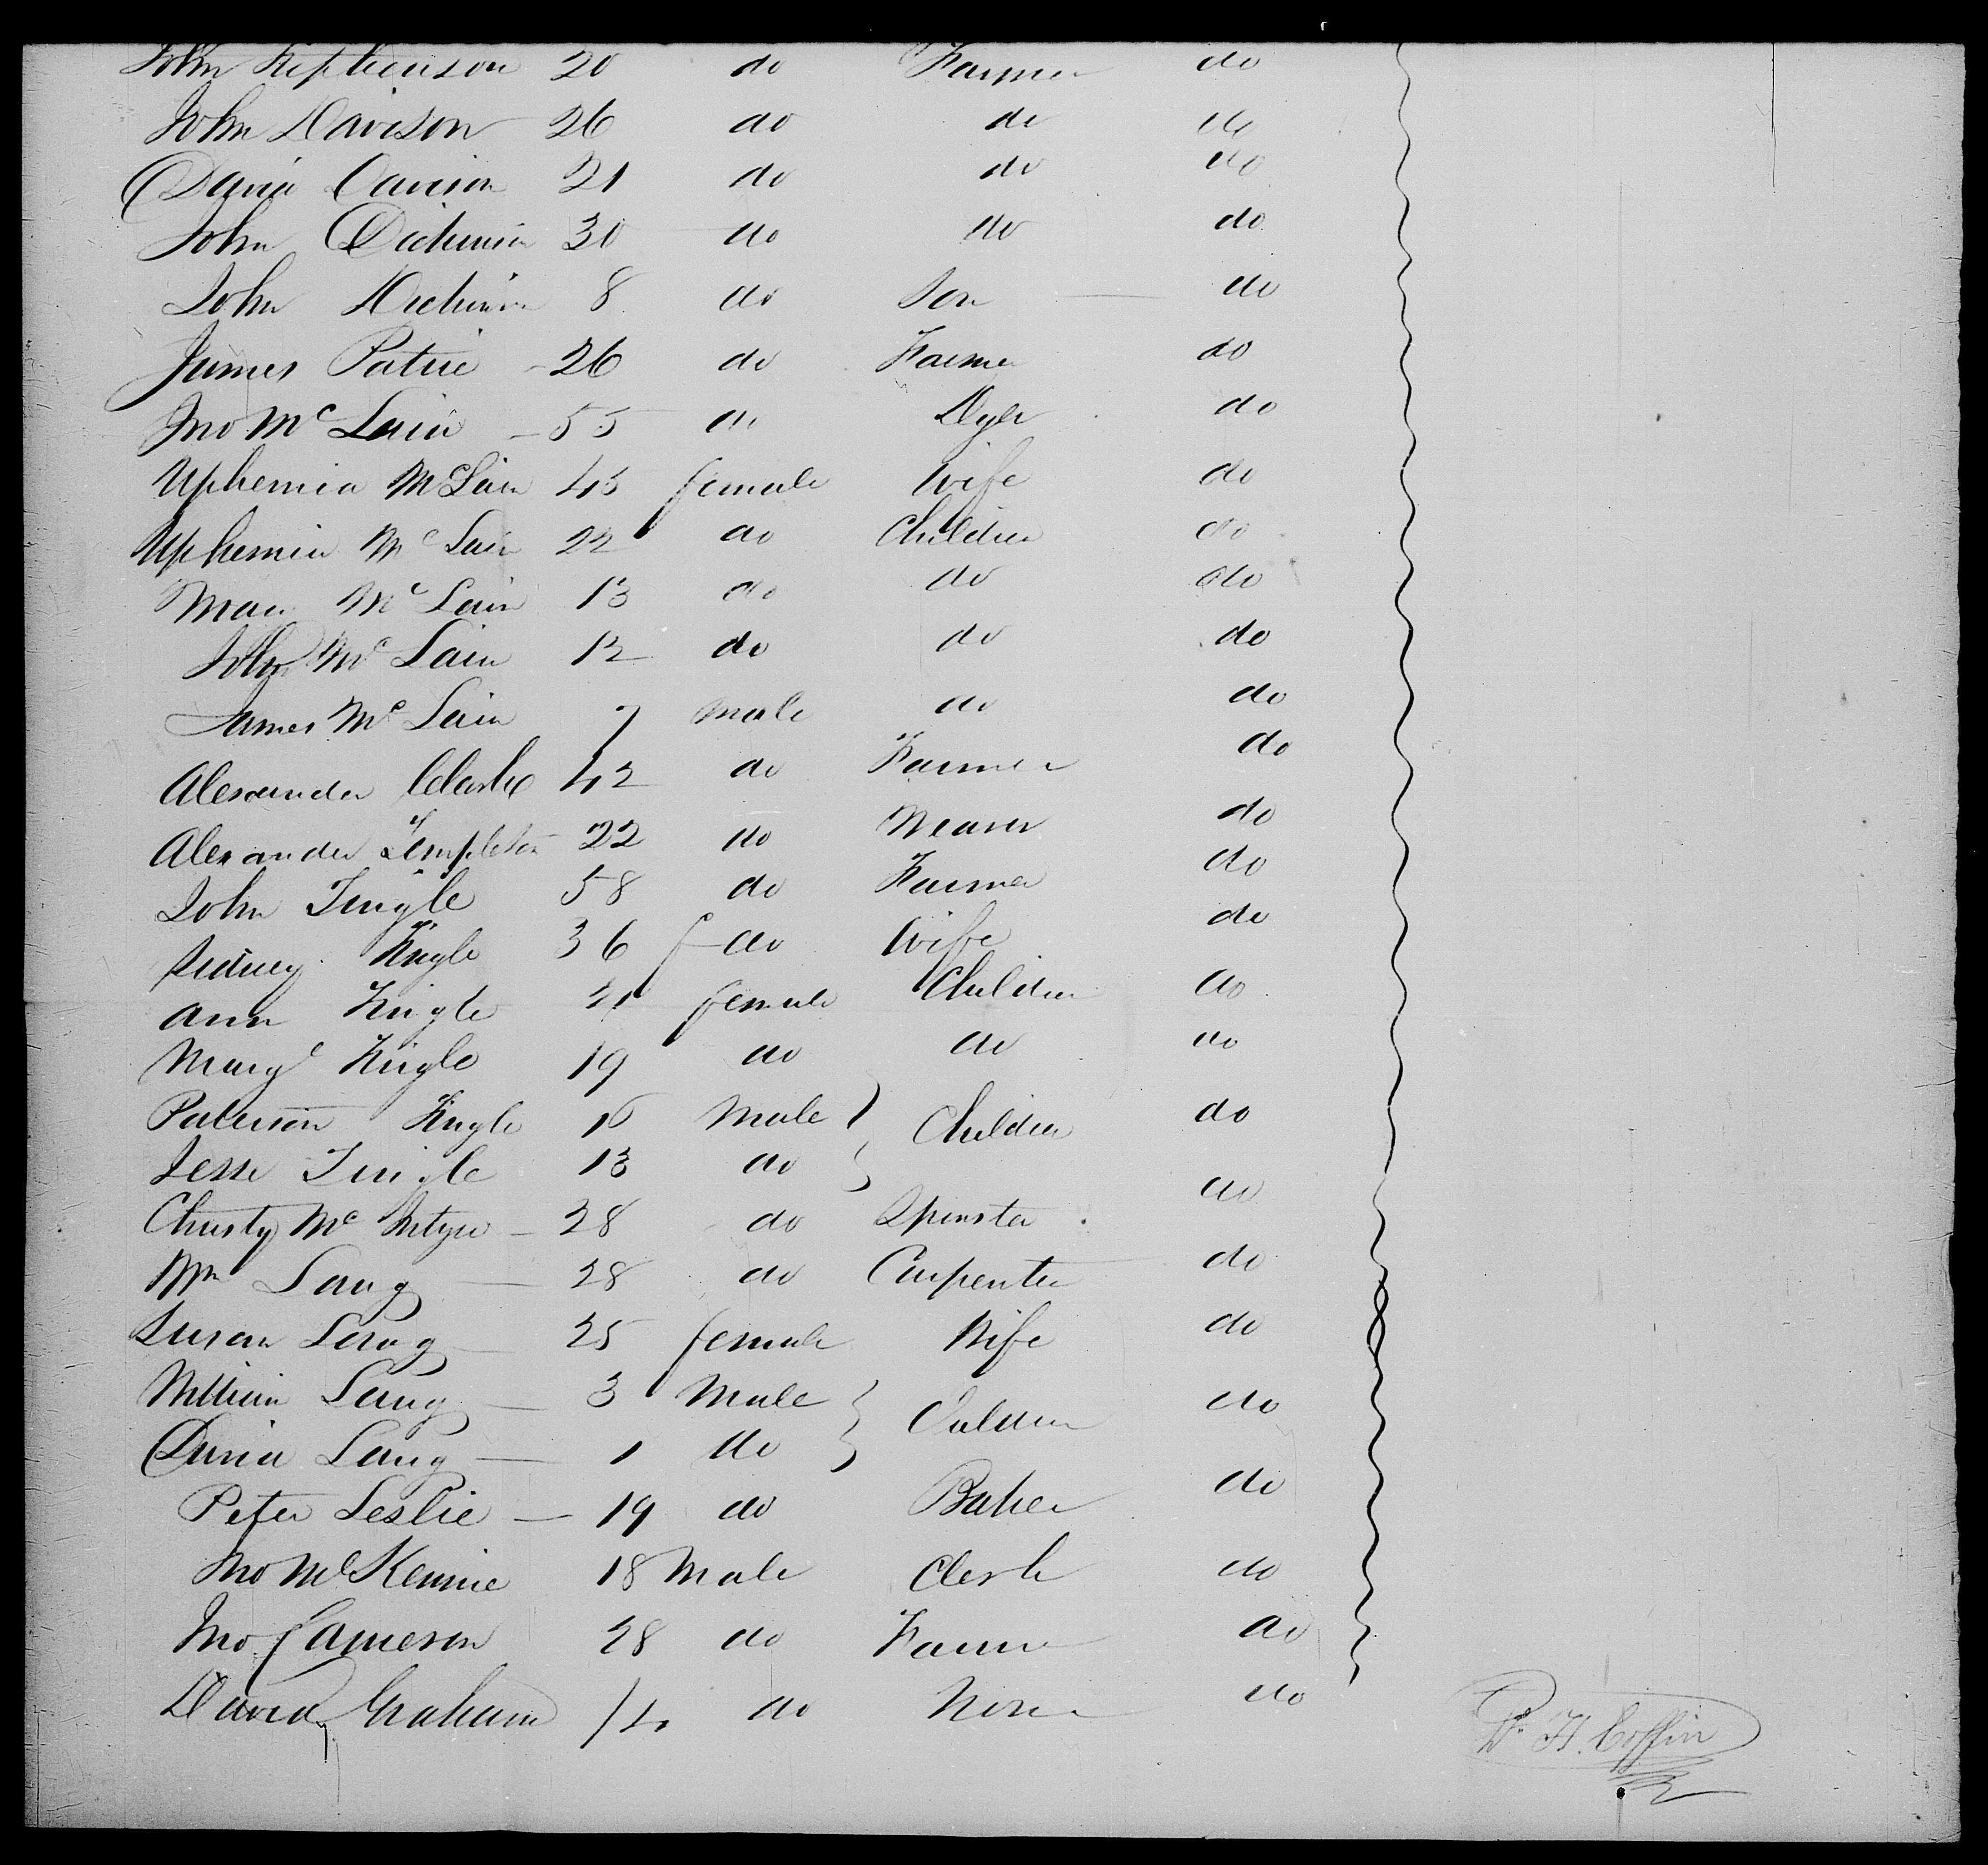 John Stephenson 20 do Farmer do
John Davison 26 do do do
David Davison 21 do do do
John Dickinson 30 do do do
John Dickinson 8 do Son do
James Patrie 26 do Farmer do
Jno Mc Lain 55 do Dyer do
Uphemia McLain 45 female Wife do
Uphemia Mc Lain 22 do Children do
Mary Mc Lain 13 do do do
John Mc Lain 12 do do do
James Mc Lain 7 male do do
Alexander Clark 42 do Farmer do
Alexander Templeton 22 do Weaver do
John Tingle 58 do Farmer do
Sidney Tingle 36 f do Wife do
Ann Tingle 21 female Children do
Mary Tingle 19 do do do
Paterson Tingle 16 Male Children do
Jesse Tingle 13 do
Christy Mc Intyre 28 do Spinster do
Wm Lang 28 do Carpenter do
Susan Lang 25 female Wife do
William Lang 3 Male Children do
David Lang 1 do
Peter Leslie 19 do Baker do
Jno McKennie 18 Male Clerk do
Jno Cameron 28 do Farmer do
David Graham 14 do None do
H. Coffin